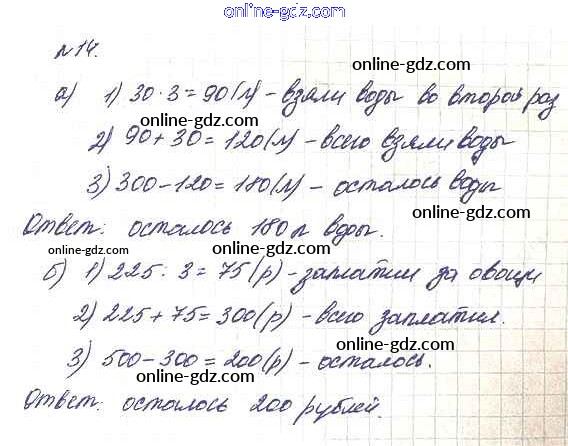 online-gdz.com
№ 14.
online-gdz.com
а) 1) 30 · 3 = 90 (л) - взяли воды во второй раз
online-gdz.com
2) 90 + 30 = 120 (л) - всего взяли воды
online-gdz.com
3) 300 - 120 = 180 (л) - осталось воды
online-gdz.com
Ответ: осталось 180 л воды.
online-gdz.com
online-gdz.com
б) 1) 225 : 3 = 75 (р) - заплатили за овощи
online-gdz.com
2) 225 + 75 = 300 (р) - всего заплатил.
online-gdz.com
3) 500 - 300 = 200 (р) - осталось.
online-gdz.com
Ответ: осталось 200 рублей.
online-gdz.com